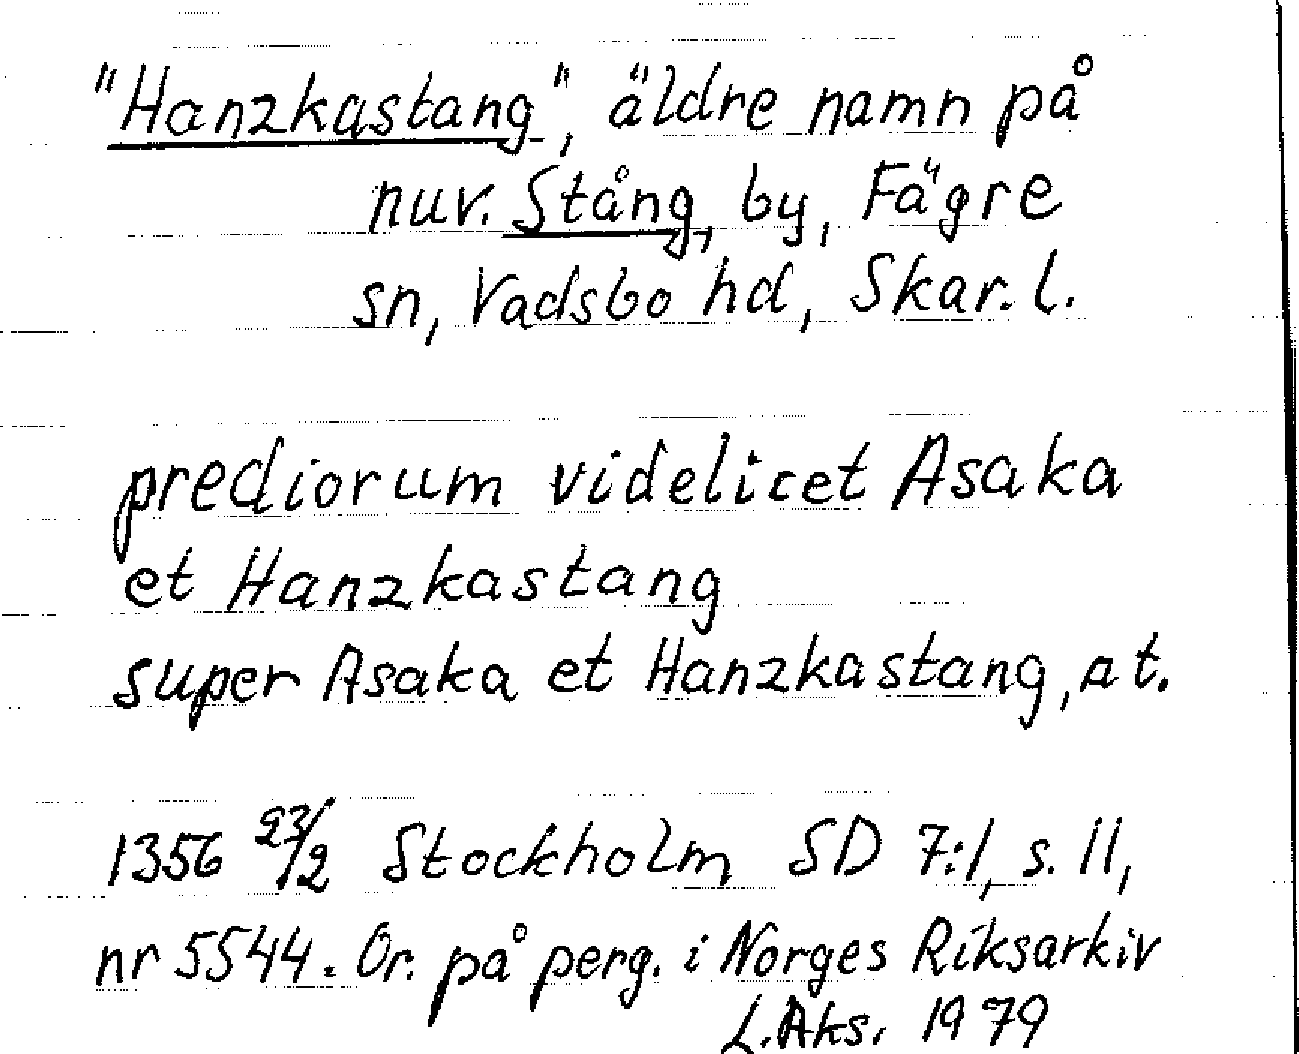 "Hanzkastang", äldre namn på
nuv. Stång, by, Fägre
sn, Vadsbo hd, Skar. l.
prediorum videlicet Asaka
et Hanzkastang
super Asaka et Hanzkastang, at.
1356 23/2 Stockholm SD 7:1, s. 11,
nr 5544. Or. på perg. i Norges Riksarkiv
L. Aks. 1979